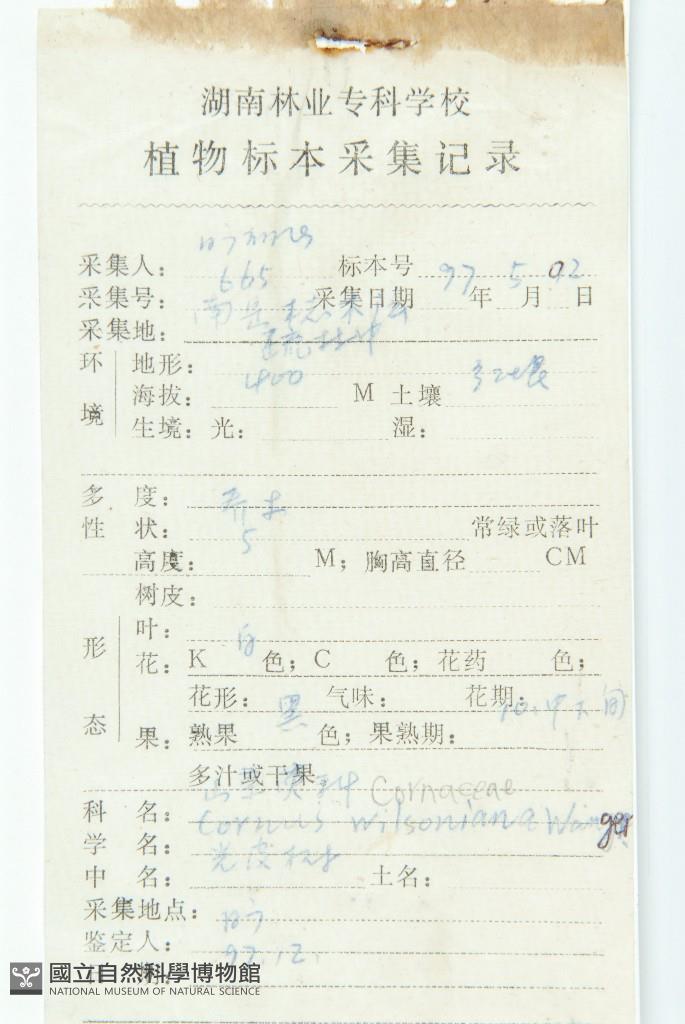 湖南林业专科学校
植物标本采集记录
采集人：
采集号：665 标本号
采集日期 97年5月02日
采集地：南岳
环境 地形：
海拔：400 M 土壤
生境：光： 湿：
多度：
性状：乔木 常绿或落叶
高度：5 M；胸高直径 CM
形态 树皮：
叶：
花：K 白 色；C 色；花药 色；
花形： 气味： 花期：
果：熟果 黑 色；果熟期：10.中下旬
多汁或干果
科名：山茱萸科 Cornaceae
学名：Cornus wilsoniana Wanger
中名：光皮树 土名：
采集地点：
鉴定人：
97.12.
國立自然科學博物館
NATIONAL MUSEUM OF NATURAL SCIENCE